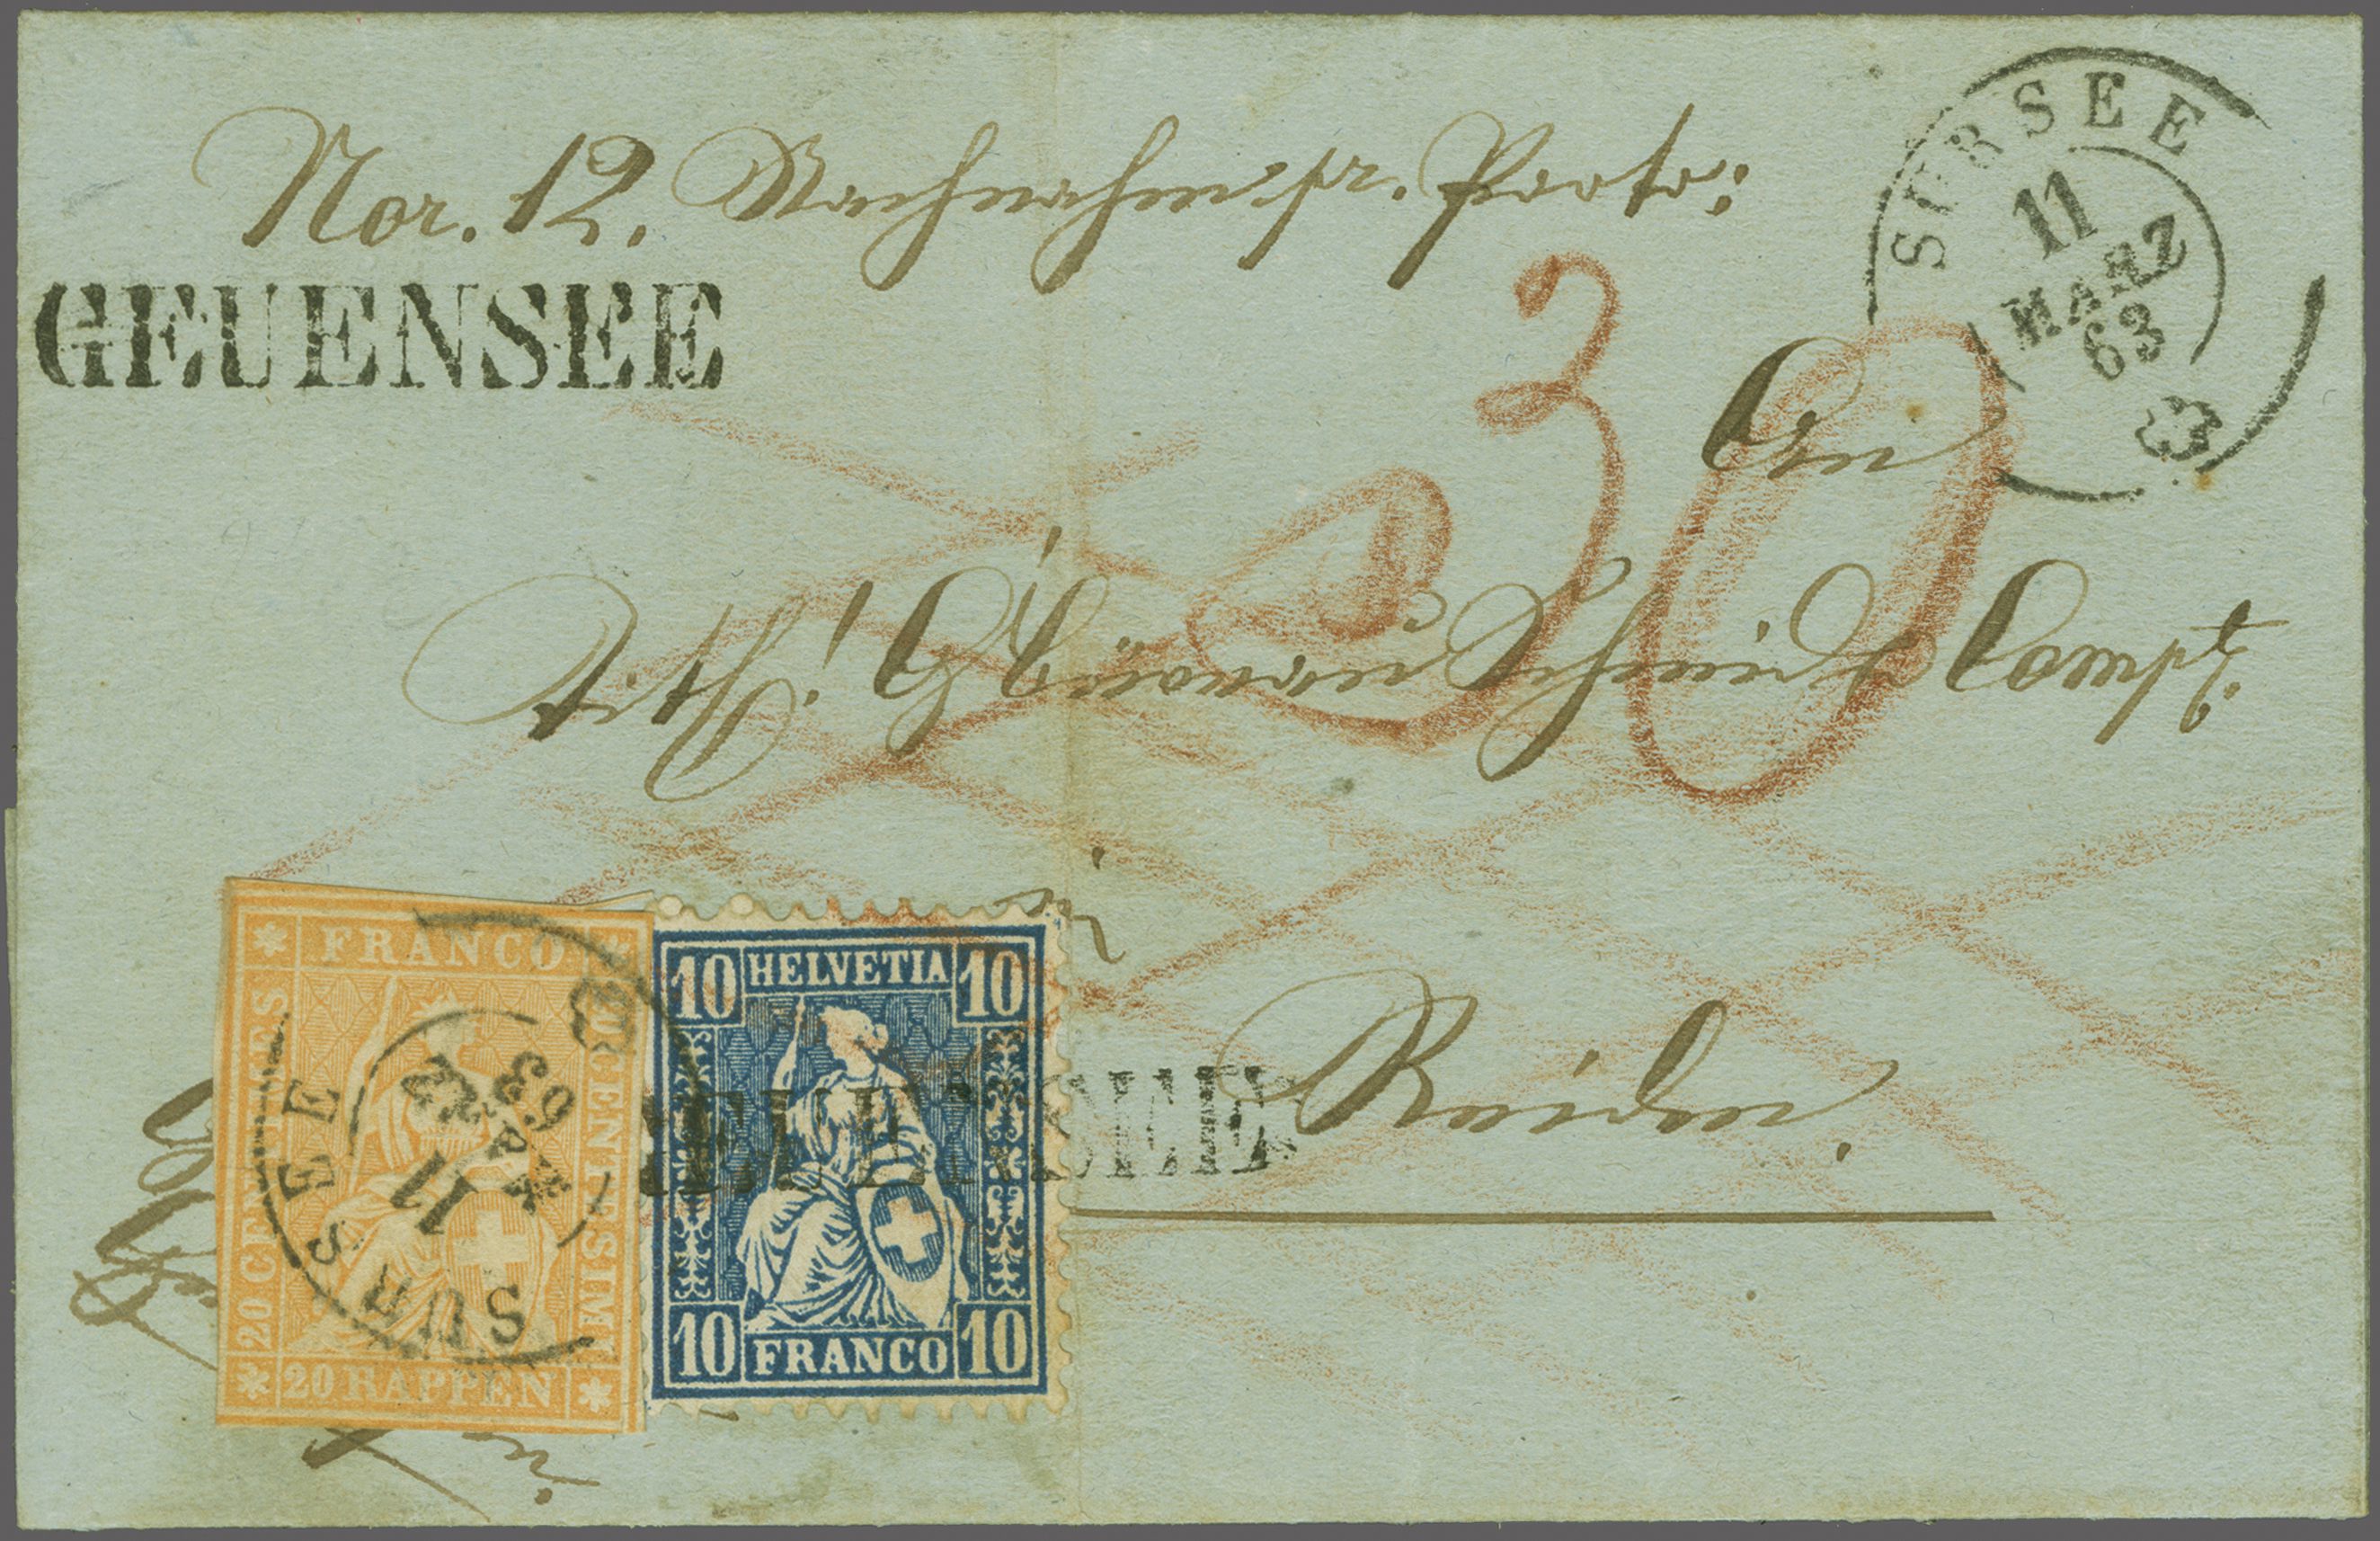 Nor. 12. Nachnahme pr. Porto:
SURSEE
11
MARZ
63
GEUENSEE
30
An
Tit!
Schmid Comp
in
Reiden.
FRANCO
20 CENTIMES
20 CENTESIMI
20 RAPPEN
SURSEE
11
MA Z
63
10 HELVETIA 10
10 FRANCO 10
EUENSEE